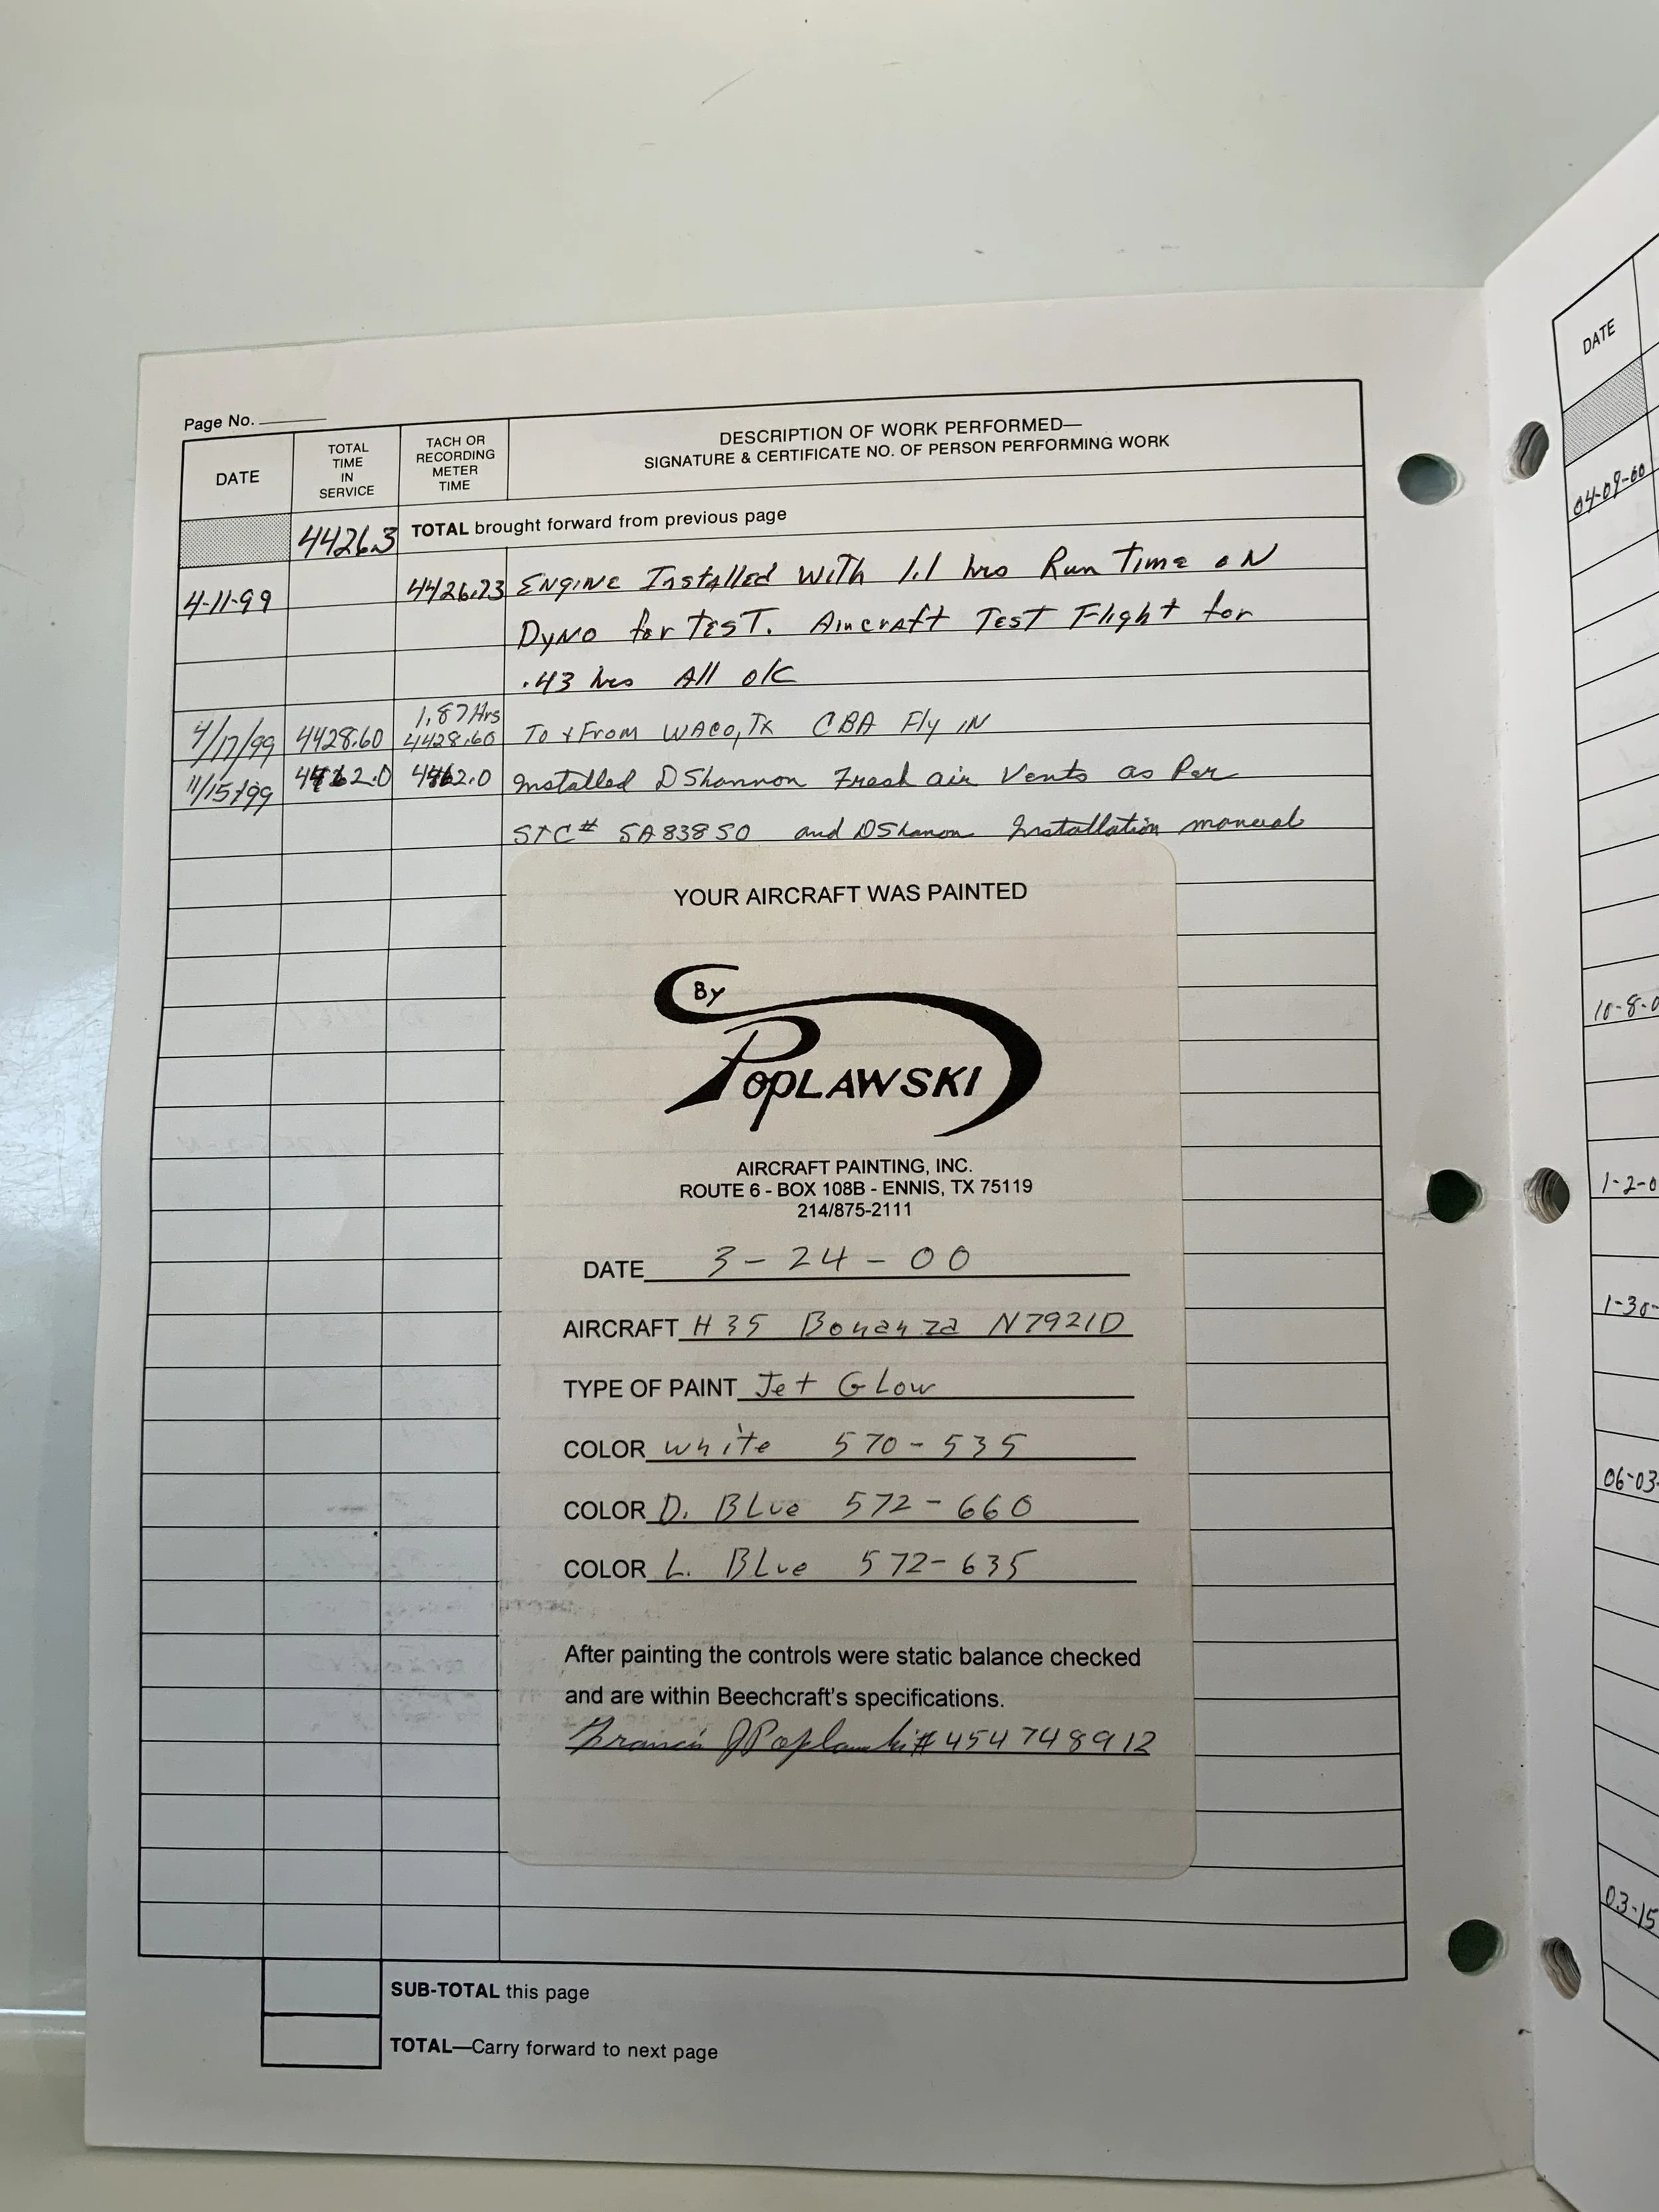 Page No.
DATE
TOTAL TIME IN SERVICE
TACH OR RECORDING METER TIME
DESCRIPTION OF WORK PERFORMED—
SIGNATURE & CERTIFICATE NO. OF PERSON PERFORMING WORK
4426.3 TOTAL brought forward from previous page
4-11-99 4426.73 ENGINE Installed With 1.1 hrs Run Time ON
DyNO for TEST. Aircraft TEST Flight for
.43 hrs All O/C
1.87 Hrs
4/17/99 4428.60 4428.60 To & From WACO, TX CBA Fly IN
11/15/99 Installed DShannon Fresh air Vents as Per
STC# SA838SO and DShanon Installation manual
YOUR AIRCRAFT WAS PAINTED
By
POPLAWSKI
AIRCRAFT PAINTING, INC.
ROUTE 6 - BOX 108B - ENNIS, TX 75119
214/875-2111
DATE 3-24-00
AIRCRAFT H35 Bonanza N7921D
TYPE OF PAINT Jet GLow
COLOR white 570-535
COLOR D. BLue 572-660
COLOR L. BLue 572-635
After painting the controls were static balance checked
and are within Beechcraft's specifications.
Francis J Poplawski # 454748912
SUB-TOTAL this page
TOTAL—Carry forward to next page
DATE
04-09-00
10-8-0
1-2-0
1-30-
06-03-
03-15